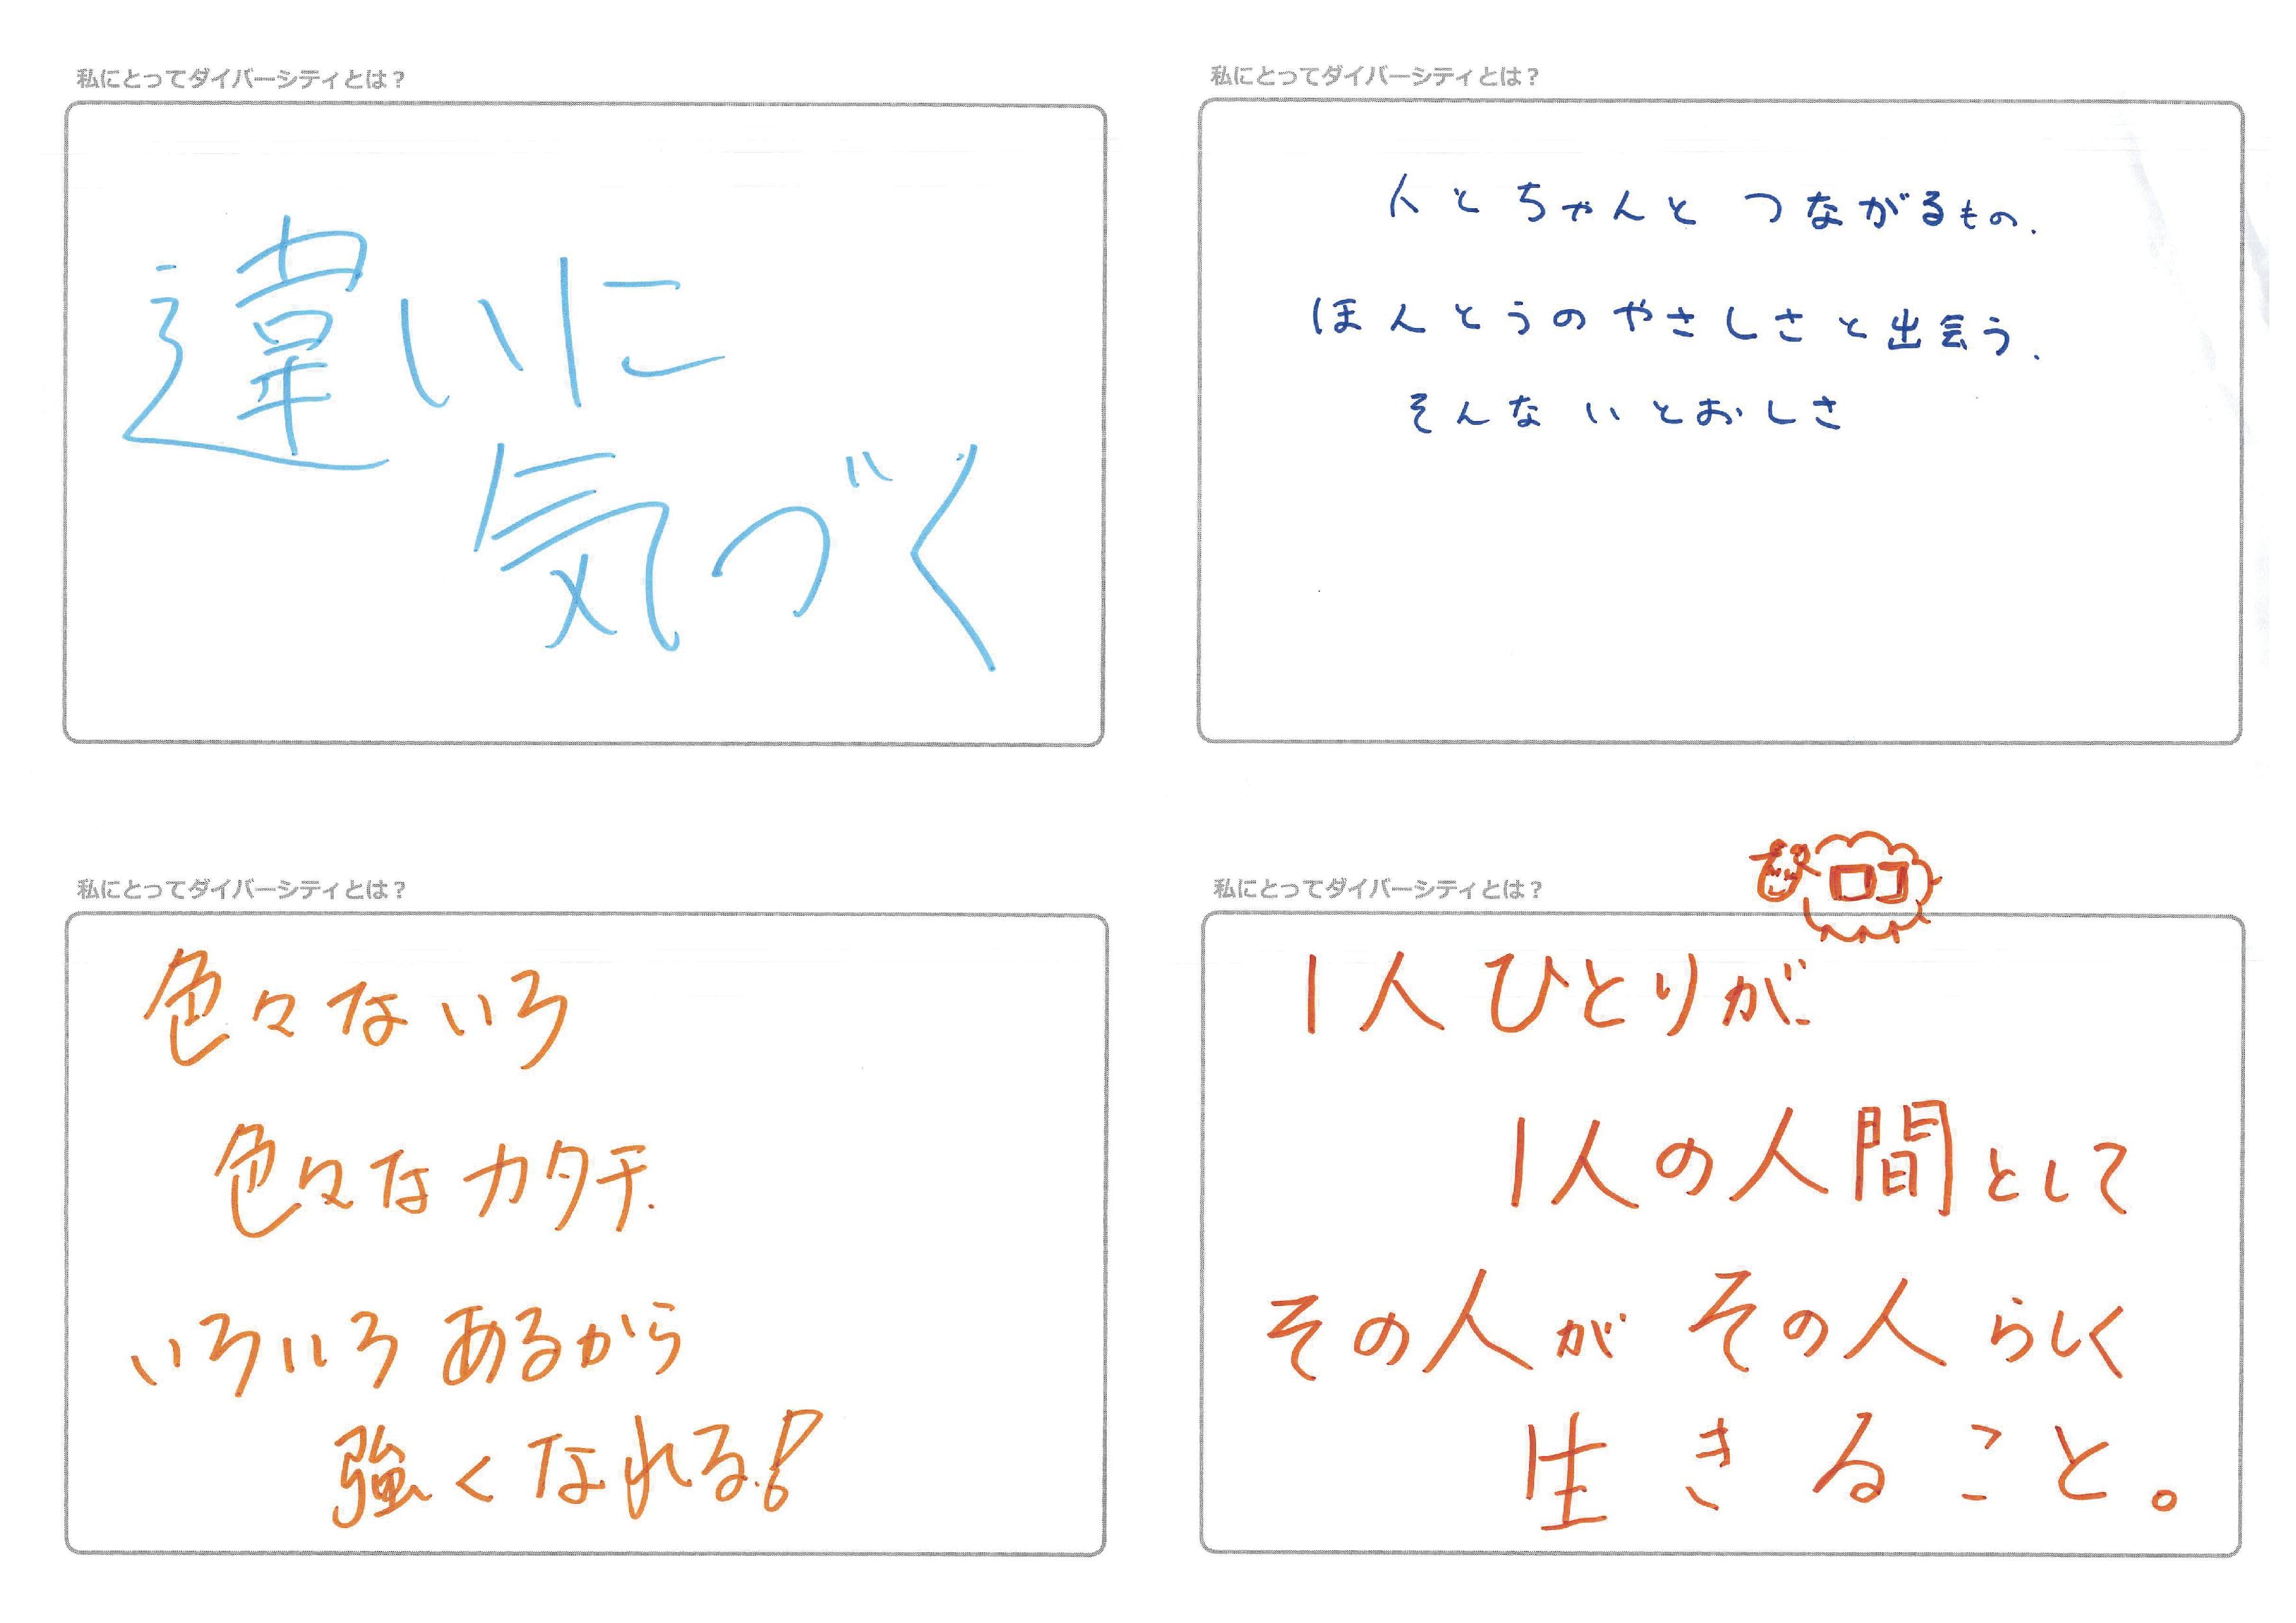 私にとってダイバーシティとは？
違いに
気づく
私にとってダイバーシティとは？
人とちゃんと つながるもの.
ほんとうのやさしさと出会う.
そんな いとおしさ
私にとってダイバーシティとは？
色々ないろ
色々なカタチ.
いろいろ あるから
強くなれる!
私にとってダイバーシティとは？
ロゴ
1人ひとりが
1人の人間として
その人が その人らしく
生きること。